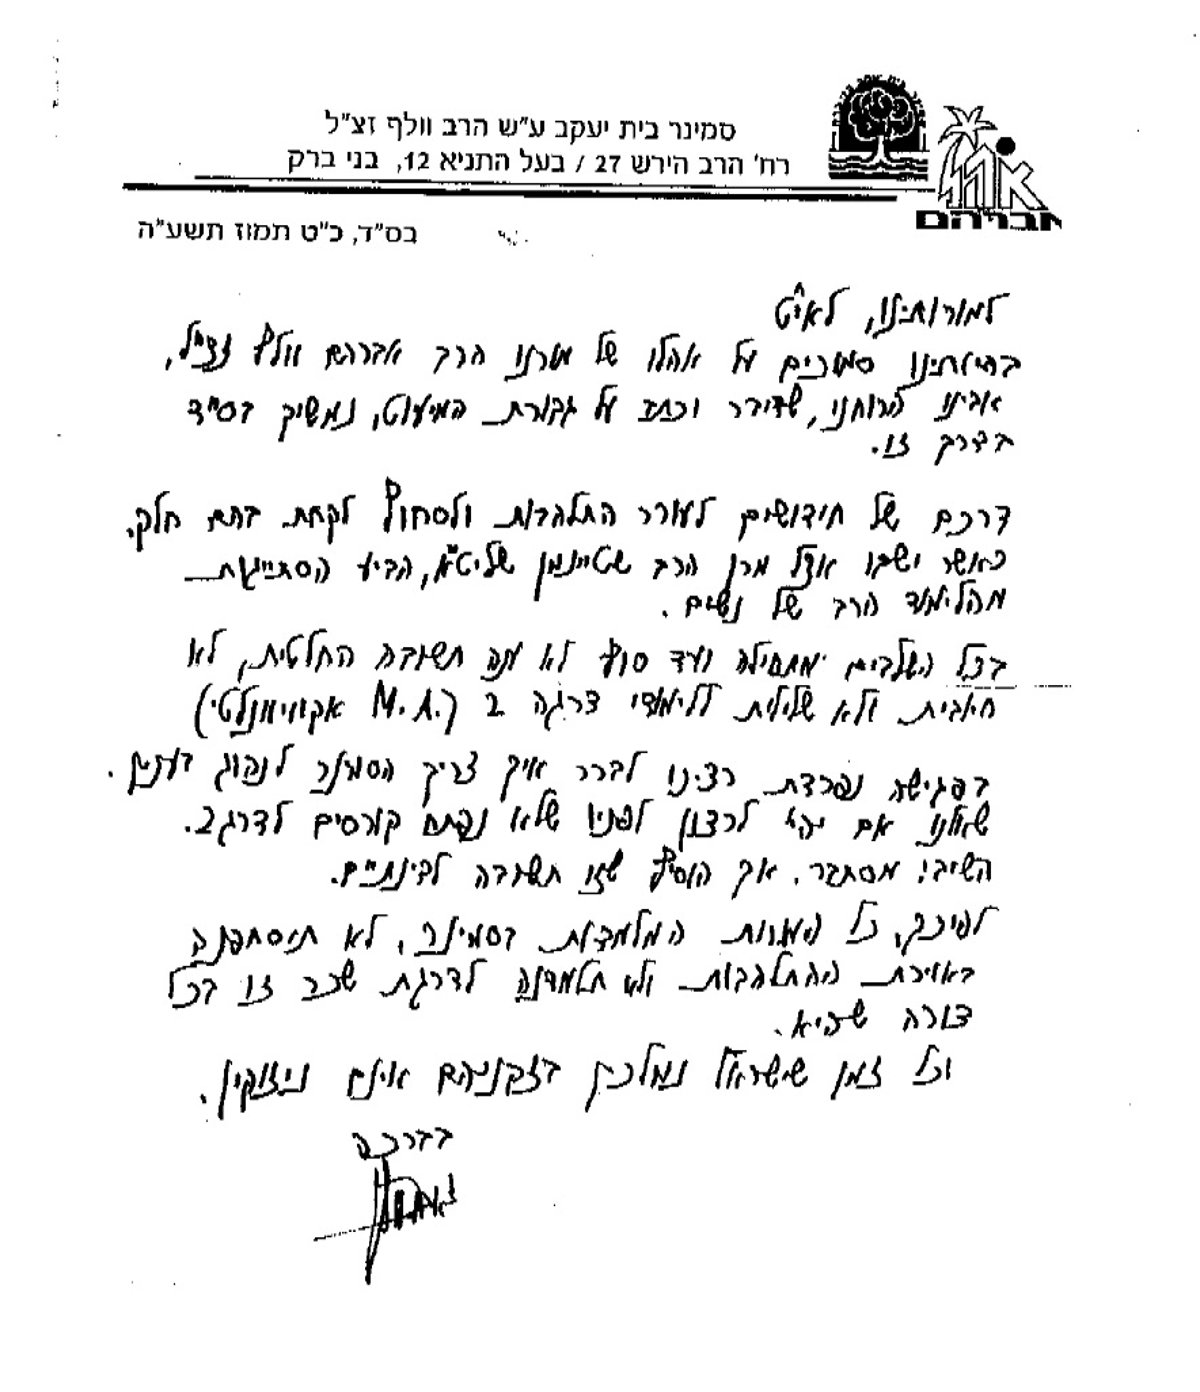 סמינר בית יעקב ע"ש הרב וולף זצ"ל
רח' הרב הירש 27 / בעל התניא 12, בני ברק
אהל
אברהם
בס"ד, כ"ט תמוז תשע"ה
למורותינו, לאי"ט
בהיותינו סמוכים על אהלו של מורנו הרב אברהם וולף זצ"ל,
אבינו הרוחני, שדיבר וכתב על גבורת המיעוט, נמשיך בס"ד
בדרך זו.
דרכם של חידושים לעורר התלהבות ולסחוף לקחת בהם חלק.
כאשר ישבו אצל מרן הרב שטיינמן שליט"א, הביע הסתייגות
מהלימוד הרב של נשים.
בכל השלבים מתחילה ועד סוף לא ענה תשובה החלטית, לא
חיובית ולא שלילית ללימודי דרגה 2 (M.A. אקוויוולנטי)
בפגישה נפרדת רצינו לברר איך צריך הסמינר לנהוג בענין.
שאלנו אם יהי' לרצון לפניו שלא נפתח קורסים לדרגה 2.
השיב: מסתבר. אך הוסיף שזו תשובה לבינתיים.
לפיכך, כל המורות המלמדות בסמינר, לא תיסחפנה
באוירת ההתלהבות ולא תלמדנה לדרגת שכר זו בכל
צורה שהיא.
וכל זמן שישראל נמלכין בזקניהם אינם ניזוקין.
בברכה